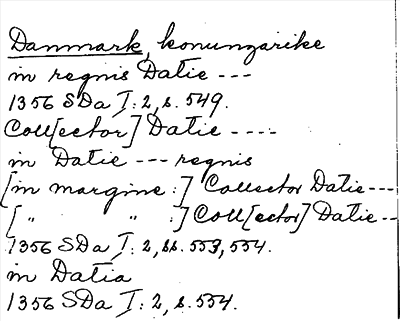 Danmark, konungarike
in regnis Datie ---
1356 SDa I:2, s. 549.
Coll[ector] Datie ----
in Datie --- regnis
[in margine:] Collector Datie---
[ " " :] Coll[ector] Datie--
1356 SDa I:2, ss. 553, 554.
in Datia
1356 SDa I:2, s. 554.